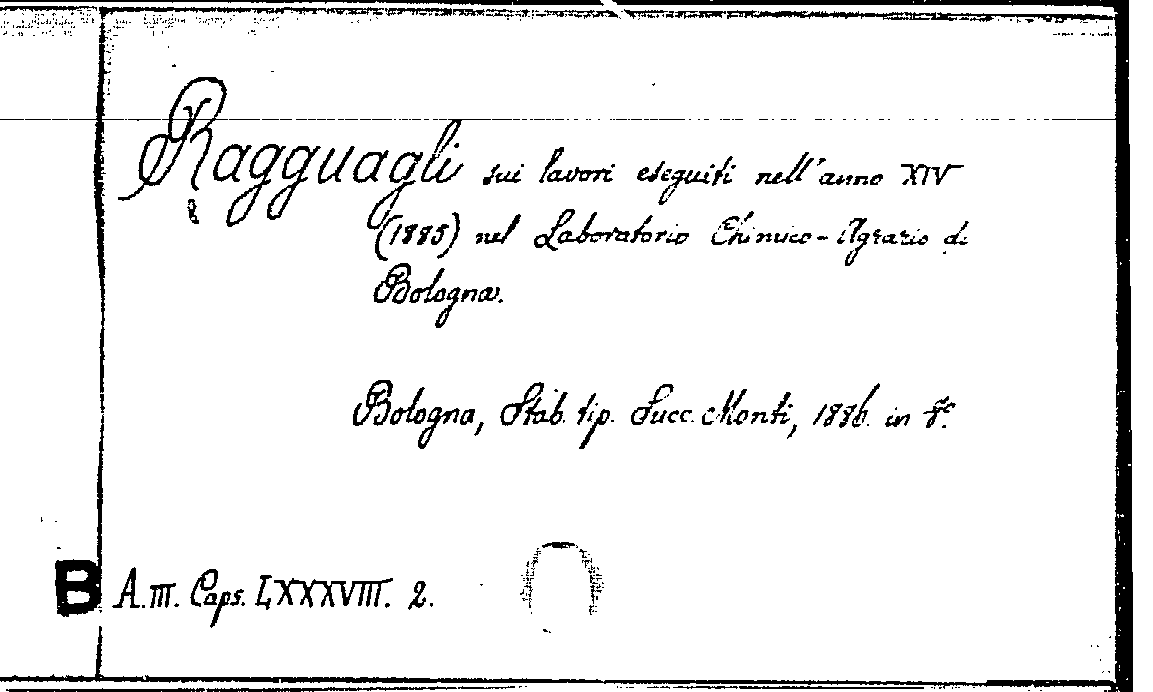 Ragguagli sui lavori eseguiti nell'anno XIV
(1885) nel Laboratorio Chimico-Agrario di
Bologna.
Bologna, Stab. tip. Succ. Monti, 1886. in 8º.
B A. III. Caps. LXXXVIII. 2.